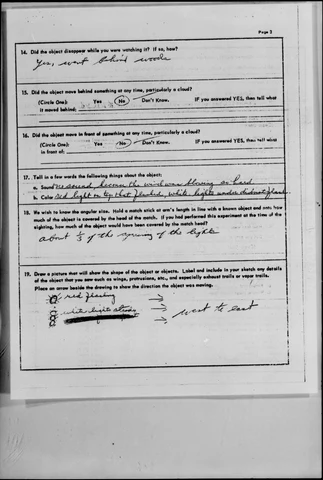 Page 2
14. Did the object disappear while you were watching it? If so, how?
Yes, went behind woods
15. Did the object move behind something at any time, particularly a cloud?
(Circle One): Yes No Don't Know. IF you answered YES, then tell what
it moved behind:
16. Did the object move in front of something at any time, particularly a cloud?
(Circle One): Yes No Don't Know. IF you answered YES, then tell what
in front of:
17. Tell in a few words the following things about the object:
a. Sound no sound, the wind was blowing so hard
b. Color red light on top that flashed, white lights under did not flash
18. We wish to know the angular size. Hold a match stick at arm's length in line with a known object and note how
much of the object is covered by the head of the match. If you had performed this experiment at the time of the
sighting, how much of the object would have been covered by the match head?
about 1/3 of the of the lights
19. Draw a picture that will show the shape of the object or objects. Label and include in your sketch any details
of the object that you saw such as wings, protrusions, etc., and especially exhaust trails or vapor trails.
Place an arrow beside the drawing to show the direction the object was moving.
red flashing
white lights
west to east